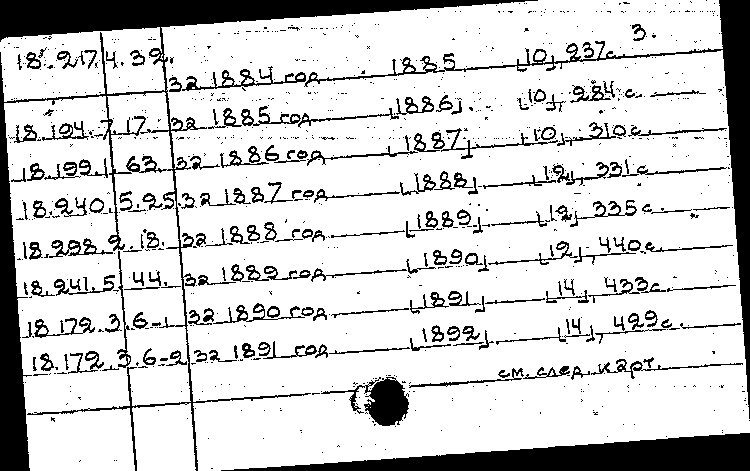 3.
18.217.4.32. за 1884 год. 1885 [10], 237с.
18.104.7.17. за 1885 год [1886]. [10], 284с.
18.199.1.63. за 1886 год [1887] [10], 310с.
18.240.5.25. за 1887 год [1888] [12], 331с
18.298.2.18. за 1888 год [1889] [12], 335с.
18.241.5.44. за 1889 год [1890] [12], 440с.
18.172.3.6-1 за 1890 год [1891] [14], 433с
18.172.3.6-2 за 1891 год. [1892] [14], 429с.
см. след. карт.